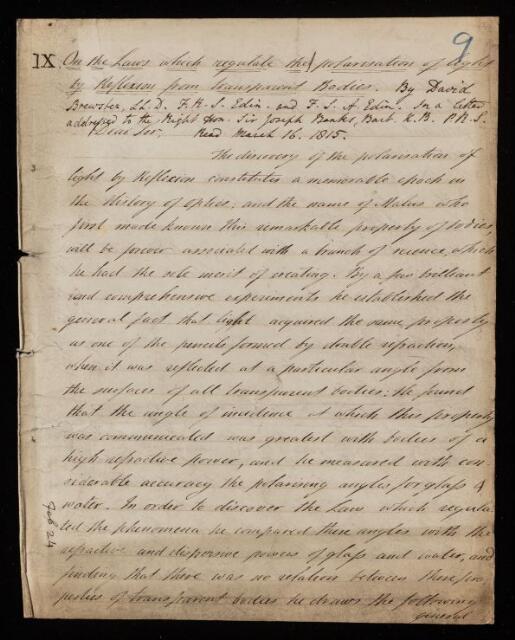 9
IX
On the Laws which regulate the polarisation of light
by Reflexion from transparent Bodies. By David
Brewster, LL.D. F.R.S. Edin. and F.S.A. Edin. In a letter
addressed to the Right Hon. Sir Joseph Banks, Bart. K.B. P.R.S.
Dear Sir, Read March 16. 1815.
The discovery of the polarisation of
light by Reflexion constitutes a memorable epoch in
the History of optics; and the name of Malus who
first made known this remarkable property of bodies,
will be forever associated with a branch of science, which
he had the sole merit of creating. By a few brilliant
and comprehensive experiments he established the
general fact that light acquired the same property
as one of the pencils formed by double refraction,
when it was reflected at a particular angle from
the surfaces of all transparent bodies: He found
that the angle of incidence at which this property
was communicated was greatest with bodies of a
high refractive power, and he measured with con-
siderable accuracy the polarising angles for glass &
water. In order to discover the Law which regula-
ted the phenomena he compared these angles with the
refractive and dispersive powers of glass and water, and
finding that there was no relation between these pro
perties of transparent bodies he draws the following
general
Feb 24